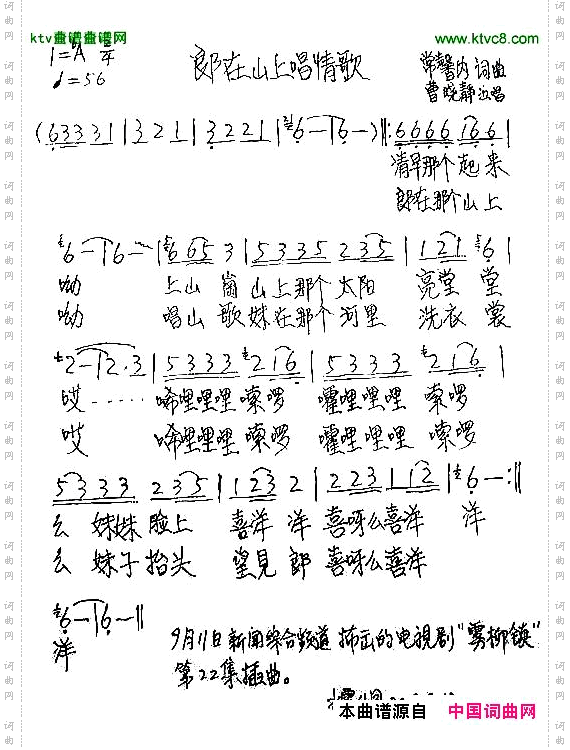 ktv曲谱曲谱网
www.ktvc8.com
1=A 2/4
♩=56
郎在山上唱情歌
常馨内 词曲
曹晓静 演唱
(63331|321|3221|6-|6-)‖:6666 166|
清早那个起来
郎在那个山上
6-|6-|665 3|5335 235|121 6|
呦 上山 崗 山上那个 太阳 亮堂 堂
呦 唱山 歌 妹在那个 河里 洗衣 裳
2-|2·3|5333 216|5333 216|
哎······唏哩哩哩 嗦啰 嚯哩哩哩 嗦啰
哎 唏哩哩哩 嗦啰 嚯哩哩哩 嗦啰
5333 235|123 2|223 1 12|6-:‖
么 妹妹 脸上 喜洋 洋 喜呀么喜洋 洋
么 妹子 抬头 望見 郎 喜呀么喜洋
6-|6-‖
洋
9月11日新闻综合频道 播出的电視剧"雾柳镇"
第22集插曲。
本曲谱源自 中国词曲网